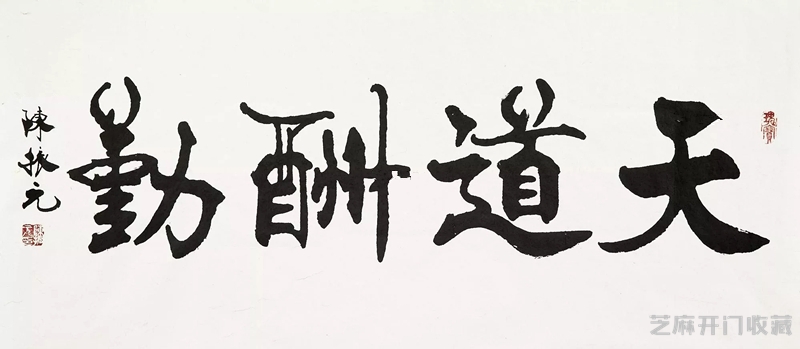 天道酬勤
陳振元
芝麻开门收藏